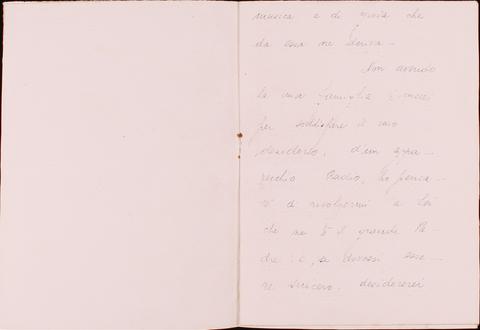 musica e di gioia che
da essa ne deriva -
Non avendo
la mia famiglia i mezzi
per soddisfare il mio
desiderio, d'un appa-
recchio Radio, ho pensa-
to di rivolgermi a Lei
che ne è il grande Pa-
dre: e, se dovessi esse-
re sincero, desidererei